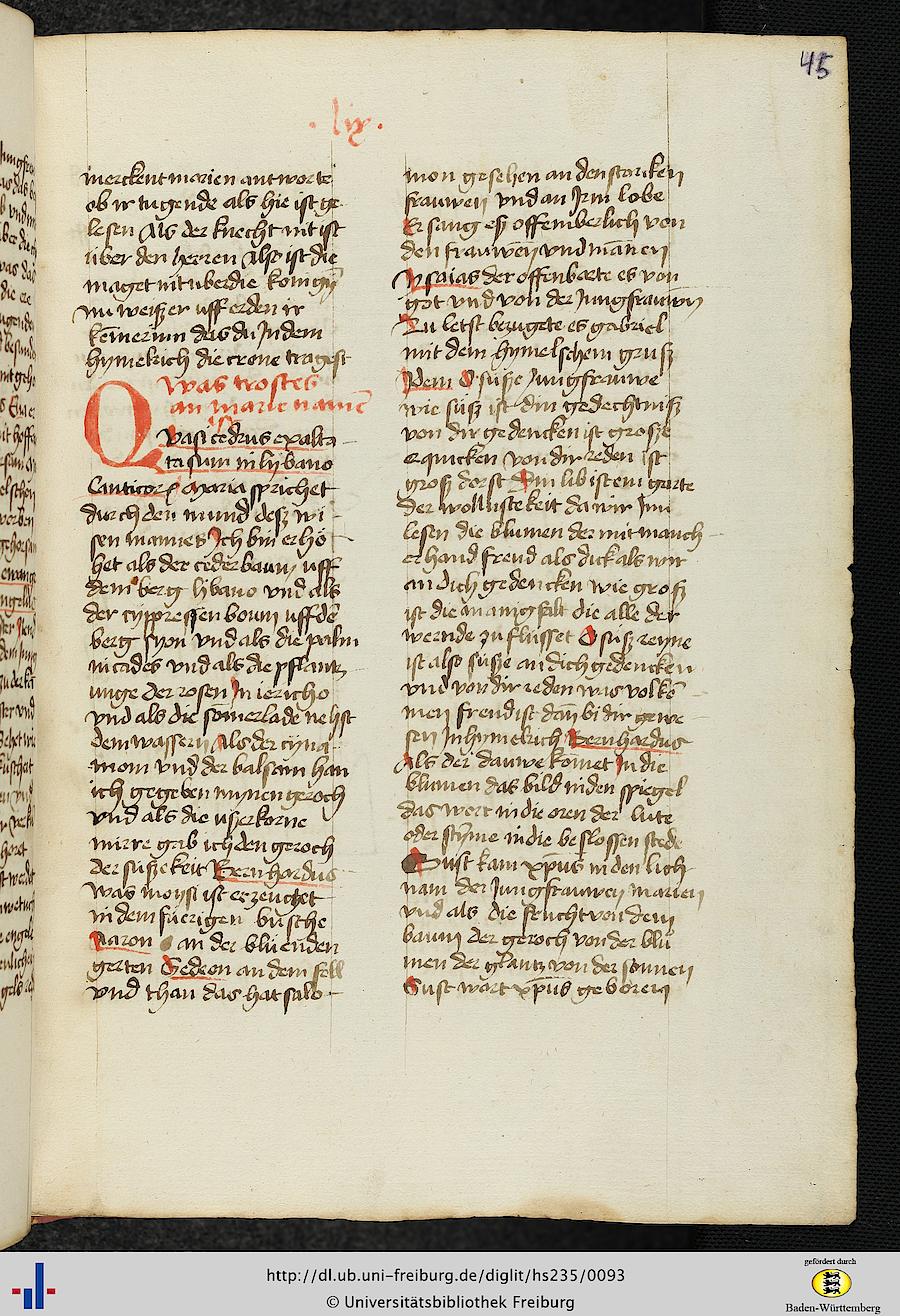 45
· lix ·
merckent marien antworte
ob ir tugende als hie ist ge-
lesen Als der knecht nit ist
über den herren Also ist die
maget nit uber die konigin
nu weiszer uff erden ir
das du In dem
hymelrich die crone tragest
Was trostes
an marie namē
Quasi cedrus exalta-
ta sum in lybano
Canticorꝝ Maria sprichet
durch den mund desz wi-
sen mannes Ich bin erhö-
het als der ceder baum uff
dem berg libano vnd als
der cyppressen boum uff dē
berg syon vnd als die palm
in cades vnd als die pflantz-
unge der rosen In iericho
vnd als die somerlade nehst
dem wassern Als der cyna-
mom vnd der balsam han
ich gegeben mynen geroch
vnd als die uszerkorne
mirre gab ich den geroch
der süszekeit Bernhardus
was moysi ist erzeuget
in dem fuerigen busche
Aaron an der blüenden
gerten Gedeon an dem fell
vnd thau das hat salo-
mon gesehen an den starcken
frauwen vnd an Irm lobe
Er sang esz offemberlich von
den frauwen vnd mannen
Ysaias der offenbarte es von
got vnd von der Jungfrauwen
Zu letst bezugete es gabriel
mit dem hymelschem grusz
Idem O süsze Jungfrauwe
wie süsz ist din gedechtnisz
von dir gedencken ist grosze
erquicken von dir reden ist
grosz dorst Din lib ist ein garte
der wollustekeit da wir Inn
lesen die blumen der mit manch-
erhand freud als dick als wir
an dich gedencken wie grosz
ist die manigfalt die alle der
wernde zu flüsset O süsz reyne
ist also süsze an dich gedencken
vnd von dir reden was volkō-
men freud ist dañ bi dir gewe-
sen In hymelrich Bernhardus
Als der dauwe komet In die
blumen das bild in den spiegel
das wort in die oren der lute
oder styme in die beslossen stede
Sust kam xp̄us in den lich-
nam der Jungfrauwen marien
vnd als die frucht von dem
baum der geroch von der blu-
men der glantz von der sonnen
Sust wart xp̄us geboren
http://dl.ub.uni-freiburg.de/diglit/hs235/0093
© Universitätsbibliothek Freiburg
gefördert durch
Baden-Württemberg